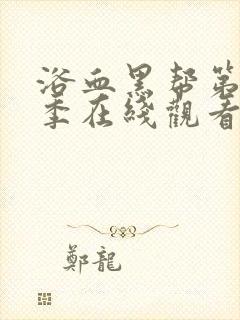 浴血黑帮第
季在线觀看
鄭龍